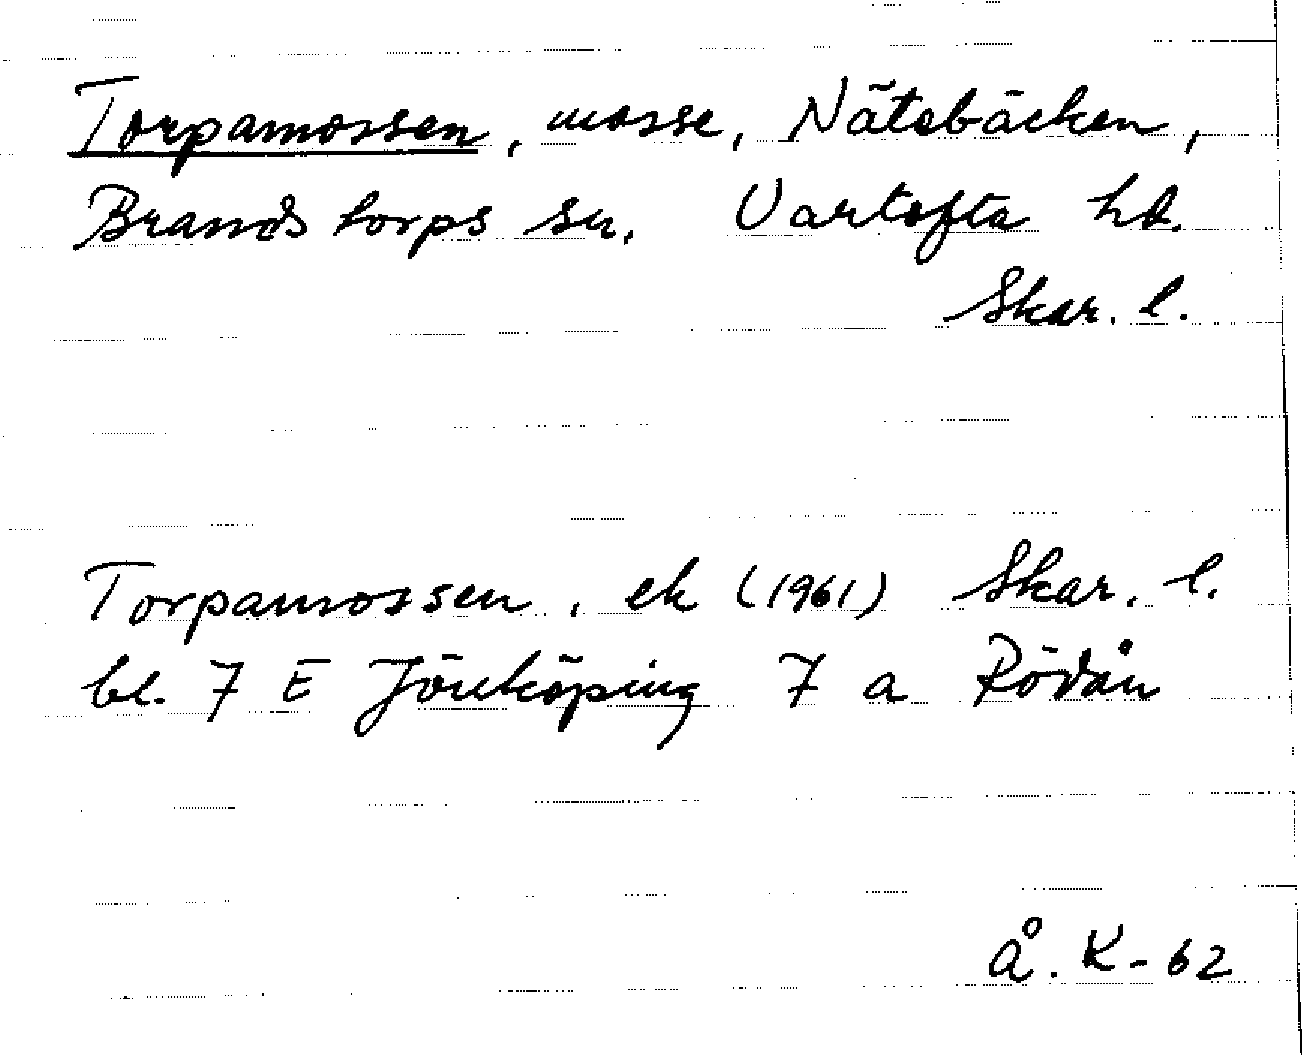 Torpamossen, mosse, Nätebäcken,
Brandstorps sn. Vartofta hd.
Skar. l.
Torpamossen. ek (1961) Skar. l.
bl. 7 E Jönköping 7 a Rödån
Å. K-62